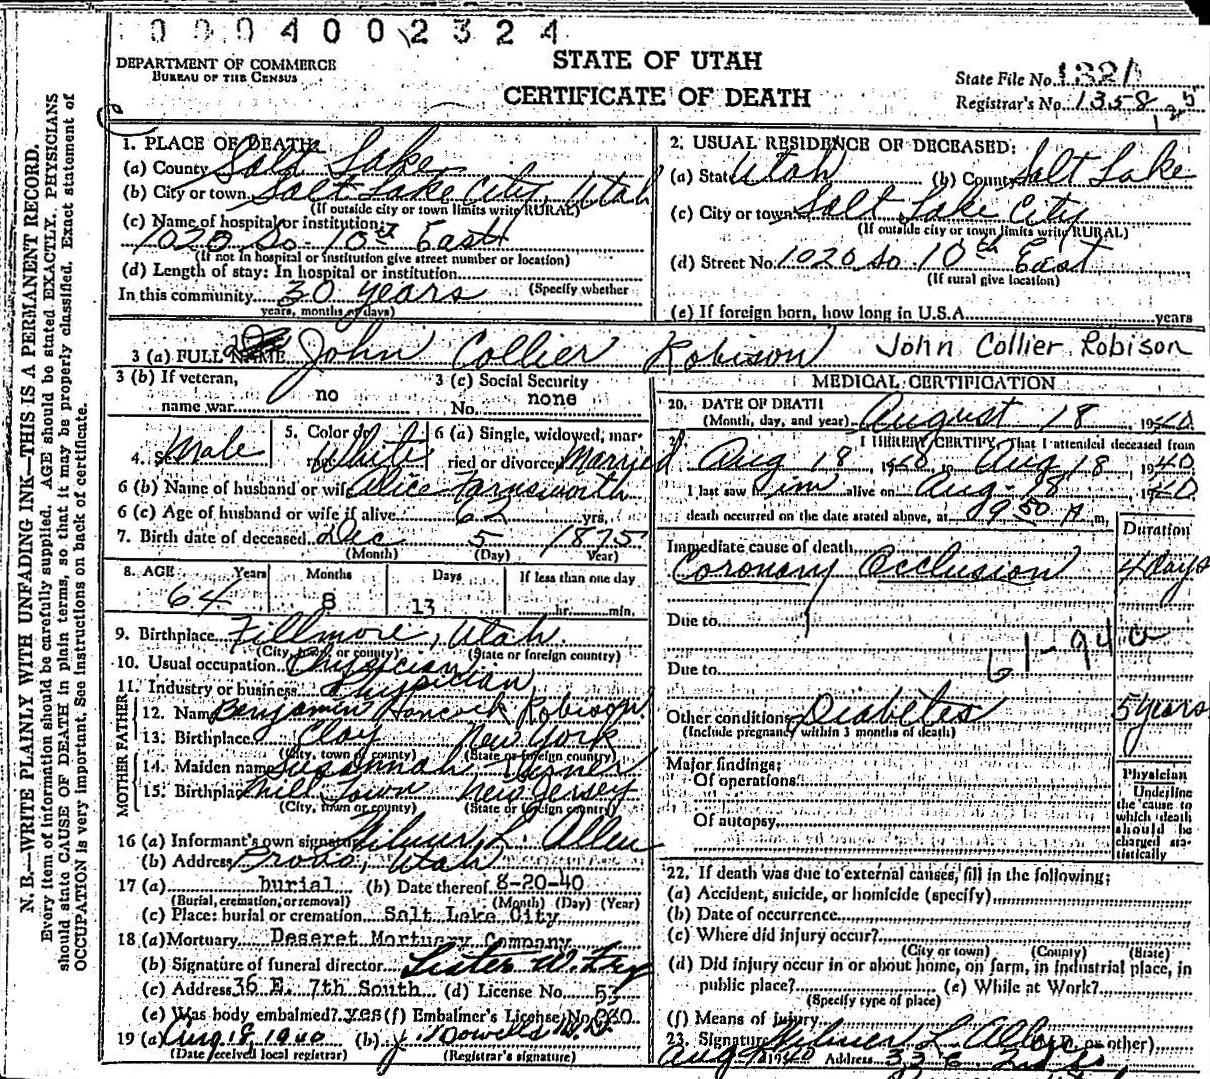 0004002324
DEPARTMENT OF COMMERCE
BUREAU OF THE CENSUS
STATE OF UTAH
CERTIFICATE OF DEATH
State File No.
Registrar's No. 1358
N. B.—WRITE PLAINLY WITH UNFADING INK—THIS IS A PERMANENT RECORD.
Every item of information should be carefully supplied. AGE should be stated EXACTLY. PHYSICIANS
should state CAUSE OF DEATH in plain terms, so that it may be properly classified. Exact statement of
OCCUPATION is very important. See instructions on back of certificate.
1. PLACE OF DEATH:
(a) County Salt Lake
(b) City or town Salt Lake City, Utah
(If outside city or town limits write RURAL)
(c) Name of hospital or institution:
1020 So. 10th East
(If not in hospital or institution give street number or location)
(d) Length of stay: In hospital or institution
In this community 30 years (Specify whether
years, months or days)
2. USUAL RESIDENCE OF DECEASED:
(a) State Utah (b) County Salt Lake
(c) City or town Salt Lake City
(If outside city or town limits write RURAL)
(d) Street No. 1020 So 10th East
(If rural give location)
(e) If foreign born, how long in U.S.A. years
3 (a) FULL NAME John Collier Robison John Collier Robison
3 (b) If veteran,
name war no
3 (c) Social Security
No. none
4. Sex Male
5. Color or
race White
6 (a) Single, widowed, mar-
ried or divorced Married
6 (b) Name of husband or wife Alice Farnsworth
6 (c) Age of husband or wife if alive 62 yrs.
7. Birth date of deceased Dec 5 1875
(Month) (Day) (Year)
8. AGE Years Months Days If less than one day
64 8 13 hr. min.
9. Birthplace Fillmore, Utah.
(City, town or county) (State or foreign country)
10. Usual occupation Physician
11. Industry or business Physician
FATHER
12. Name Benjamin Hancock Robison
13. Birthplace Clay New York
(City, town or county) (State or foreign country)
MOTHER
14. Maiden name Susannah Turner
15. Birthplace Mill Town New Jersey
(City, town or county) (State or foreign country)
16 (a) Informant's own signature Wilmer L. Allen
(b) Address Provo, Utah
17 (a) burial (b) Date thereof 8-20-40
(Burial, cremation, or removal) (Month) (Day) (Year)
(c) Place: burial or cremation Salt Lake City
18 (a) Mortuary Deseret Mortuary Company
(b) Signature of funeral director
(c) Address 36 E. 7th South (d) License No. 53
(e) Was body embalmed? yes (f) Embalmer's License No.
19 (a) Aug 18 1940 (b)
(Date received local registrar) (Registrar's signature)
MEDICAL CERTIFICATION
20. DATE OF DEATH
(Month, day, and year) August 18, 1940
21. I HEREBY CERTIFY, That I attended deceased from
Aug 18, 1940 to Aug 18, 1940.
I last saw him alive on Aug. 18, 1940
death occurred on the date stated above, at 9 50 A m.
Duration
Immediate cause of death
Coronary Occlusion 4 days
Due to
61-94a
Due to
Other conditions Diabetes 5 years
(Include pregnancy within 3 months of death)
Major findings:
Of operations
Of autopsy
Physician
Underline
the cause to
which death
should be
charged sta-
tistically
22. If death was due to external causes, fill in the following:
(a) Accident, suicide, or homicide (specify)
(b) Date of occurrence
(c) Where did injury occur?
(City or town) (County) (State)
(d) Did injury occur in or about home, on farm, in industrial place, in
public place? (e) While at Work?
(Specify type of place)
(f) Means of Injury
23. Signature Wilmer L. Allen or other)
Aug 1940 Address